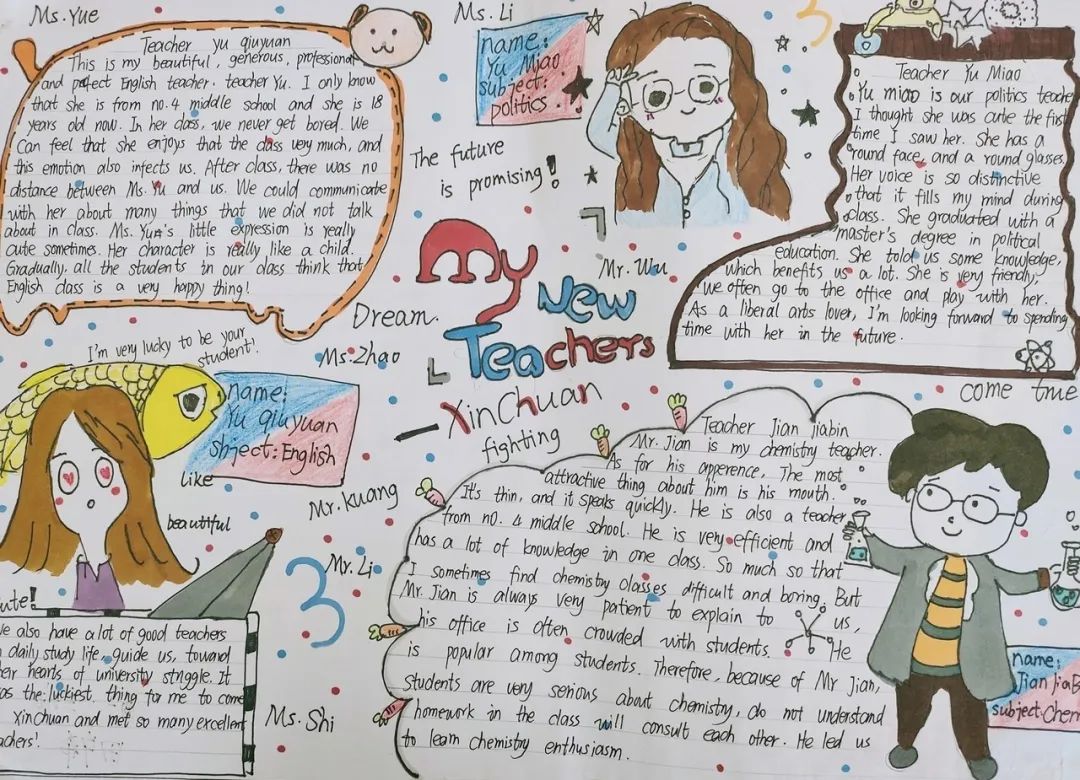 Ms. Yue
Teacher yu qiuyuan
This is my beautiful, generous, professional
and pefect English teacher, teacher Yu. I only know
that she is from no.4 middle school and she is 18
years old now. In her class, we never get bored. We
can feel that she enjoys that the class very much, and
this emotion also infects us. After class, there was no
distance between Ms. Yu and us. We could communicate
with her about many things that we did not talk
about in class. Ms. Yu's little expression is really
cute sometimes. Her character is really like a child.
Gradually, all the students in our class think that
English class is a very happy thing!
Ms. Li
name:
Yu Miao
subject:
politics
The future
is promising!
3
Teacher Yu Miao
Yu miao is our politics teache
I thought she was cute the first
time I saw her. She has a
round face, and a round glasses
Her voice is so distinctive
that it fills my mind during
class. She graduated with a
master's degree in political
education. She told us some knowledge,
which benefits us a lot. She is very friendly,
we often go to the office and play with her.
As a liberal arts lover, I'm looking forward to spending
time with her in the future.
My
New
Teachers
Mr. Wu
Dream.
Ms. Zhao
XinChuan
fighting
come true
I'm very lucky to be your
student!
name:
Yu qiuyuan
Sbject: English
like
beautiful
Mr. kuang
Mr. Li
3
Ms. Shi
cute!
We also have a lot of good teachers
daily study life, guide us, toward
heir hearts of university struggle. It
as the luckiest thing for me to come
XinChuan and met so many excellent
achers!
Teacher Jian jiabin
Mr. Jian is my chemistry teacher.
As for his apperence, The most
attractive thing about him is his mouth.
It's thin, and it speaks quickly. He is also a teacher
from no. 4 middle school. He is very efficient and
has a lot of knowledge in one class. So much so that
I sometimes find chemistry classes difficult and boring. But
Mr. Jian is always very patient to explain to us,
his office is often crowded with students. He
is popular among students. Therefore, because of Mr Jian,
students are very serious about chemistry, do not understand
homework in the class will consult each other. He led us
to learn chemistry enthusiasm.
name:
Jian JiaB
subject: Chem